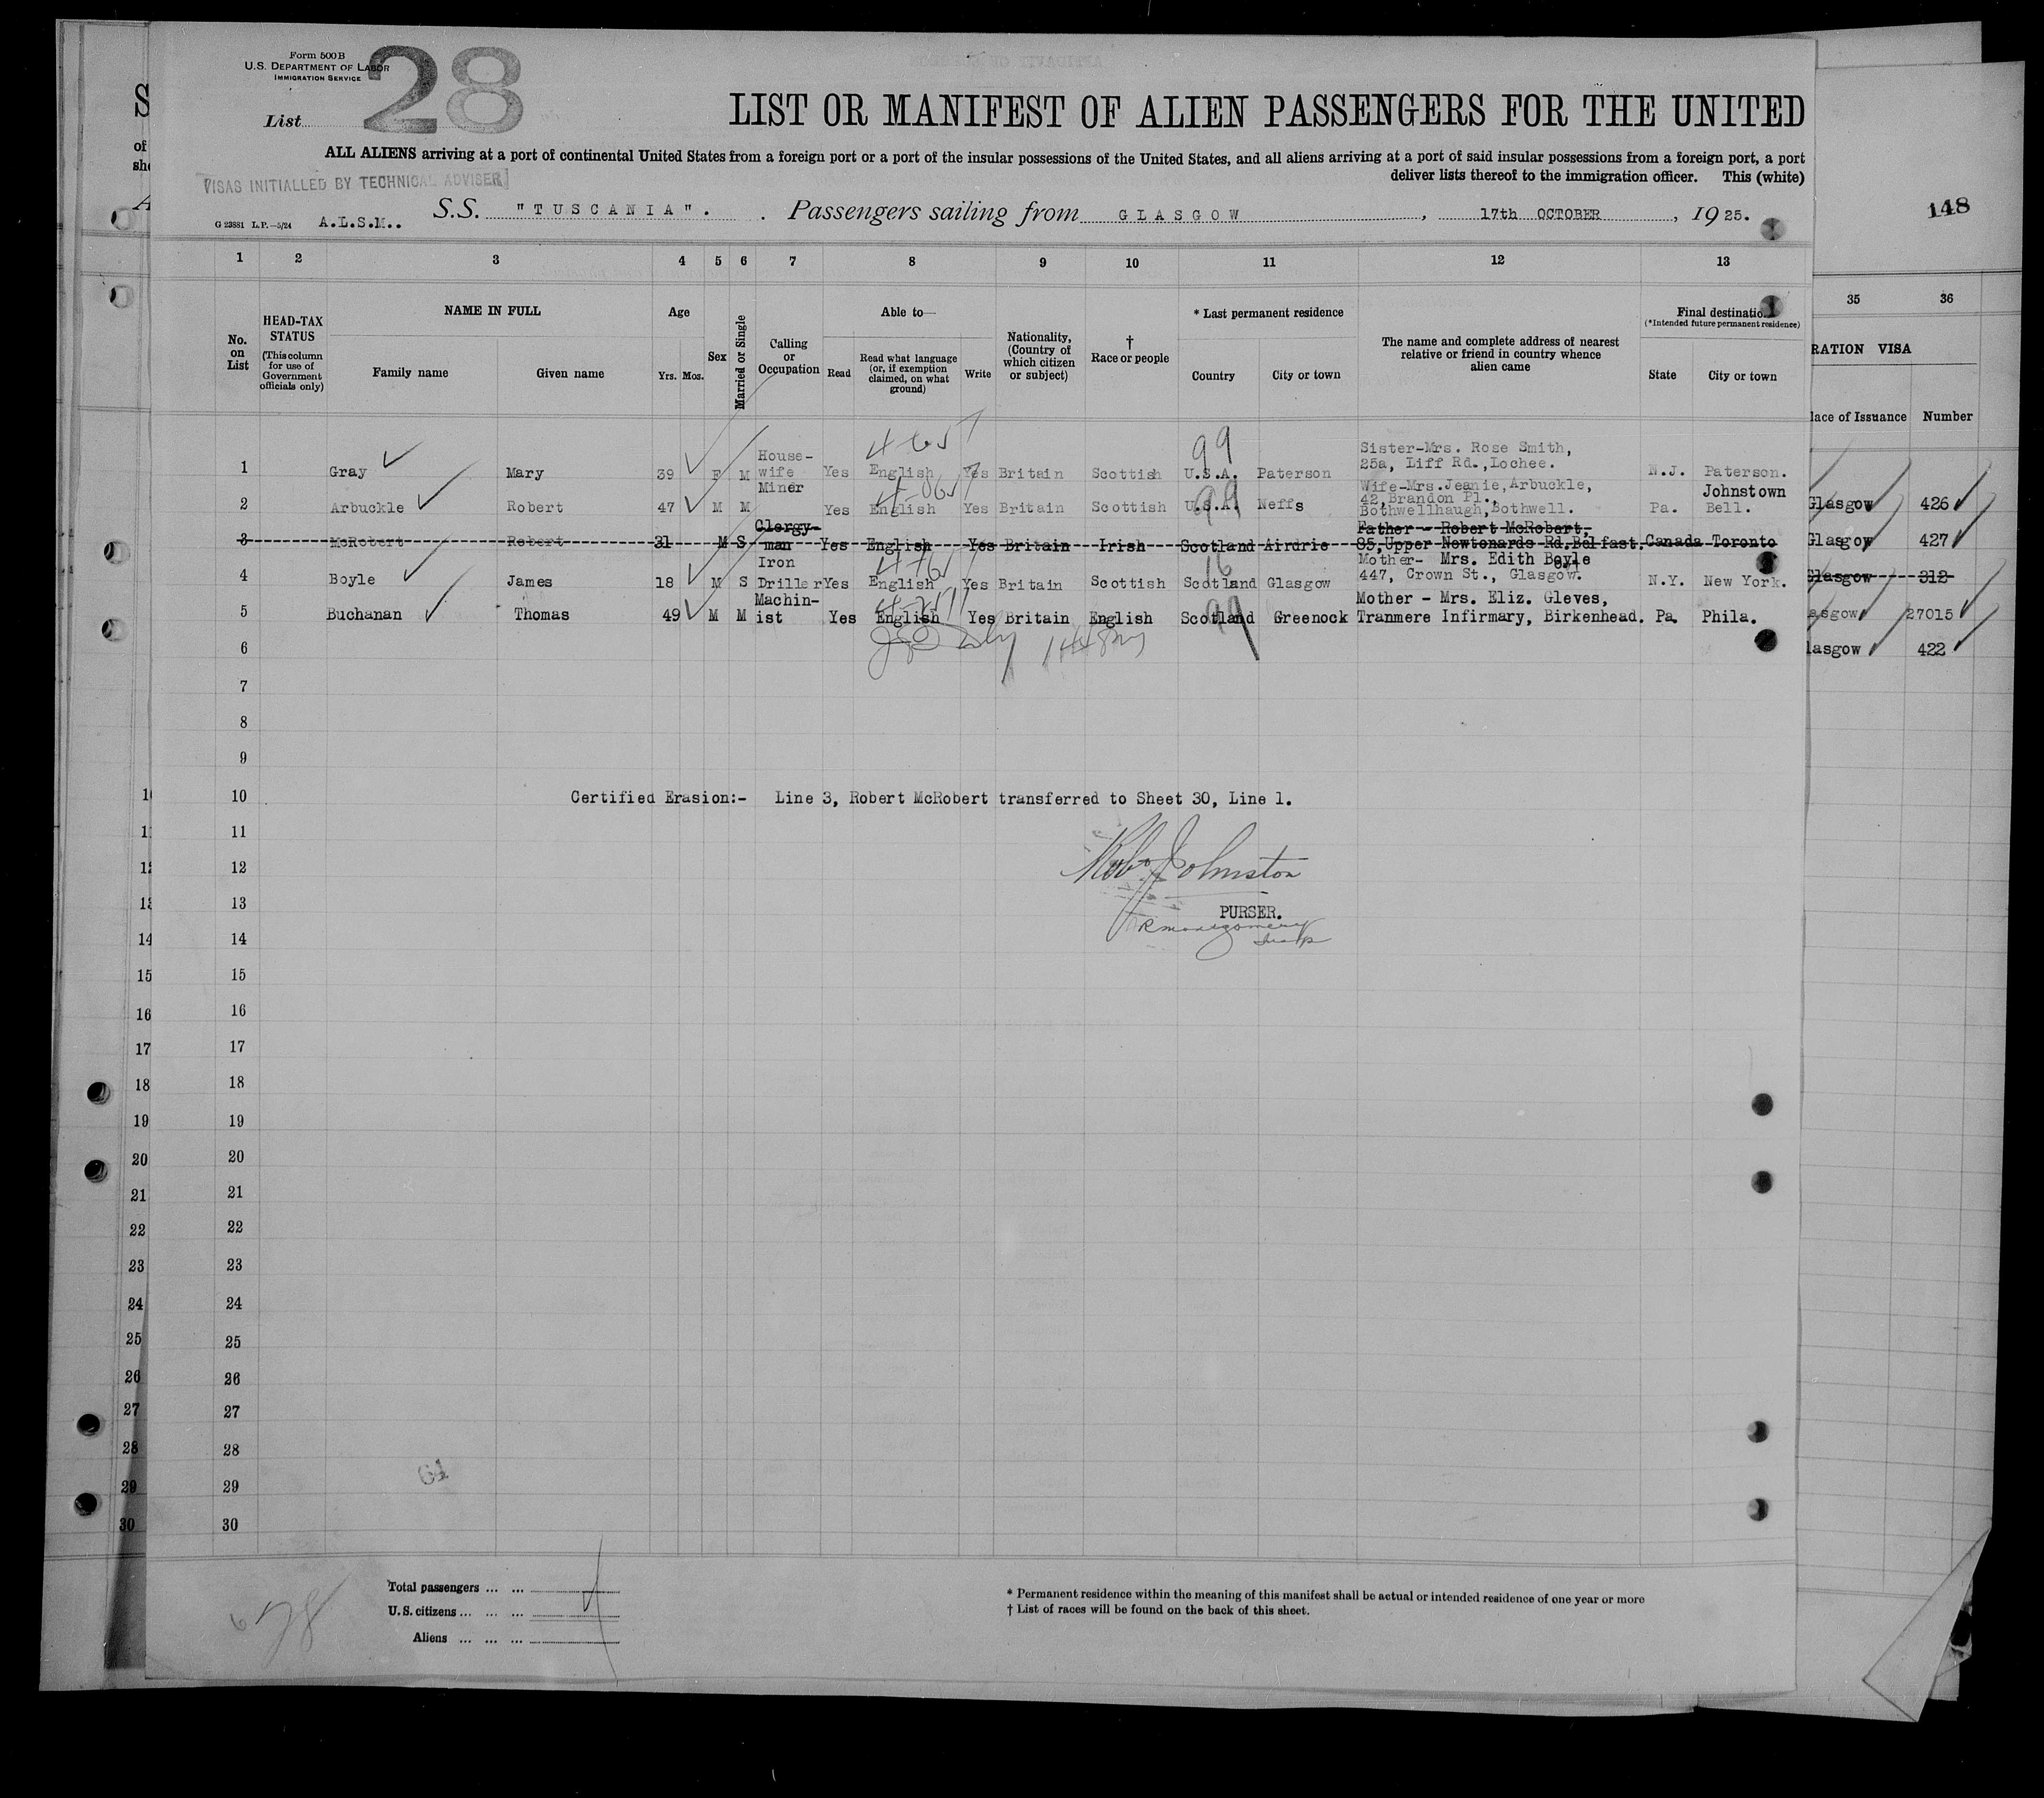 Form 500 B
U.S. DEPARTMENT OF LABOR
IMMIGRATION SERVICE
28
List
LIST OR MANIFEST OF ALIEN PASSENGERS FOR THE UNITED
ALL ALIENS arriving at a port of continental United States from a foreign port or a port of the insular possessions of the United States, and all aliens arriving at a port of said insular possessions from a foreign port, a port
deliver lists thereof to the immigration officer. This (white)
VISAS INITIALLED BY TECHNICAL ADVISER
S.S. "TUSCANIA". Passengers sailing from GLASGOW, 17th OCTOBER, 1925.
G 23881 L.P.—5/24 A.L.S.M..
148
1 2 3 4 5 6 7 8 9 10 11 12 13
35 36
No. on List
HEAD-TAX STATUS
(This column for use of Government officials only)
NAME IN FULL
Family name Given name
Age
Yrs. Mos.
Sex
Married or Single
Calling or Occupation
Able to—
Read
Read what language (or, if exemption claimed, on what ground)
Write
Nationality, (Country of which citizen or subject)
† Race or people
* Last permanent residence
Country City or town
The name and complete address of nearest relative or friend in country whence alien came
Final destination
(*Intended future permanent residence)
State City or town
RATION VISA
lace of Issuance Number
1 Gray Mary 39 F M House-wife Yes English Yes Britain Scottish U.S.A. Paterson Sister-Mrs. Rose Smith, 25a, Liff Rd.,Lochee. N.J. Paterson.
99
2 Arbuckle Robert 47 M M Miner Yes English Yes Britain Scottish U.S.A. Neffs Wife-Mrs.Jeanie,Arbuckle, 42,Brandon Pl., Bothwellhaugh,Bothwell. Pa. Johnstown Bell.
99
Glasgow 426
3 McRobert Robert 31 M S Clergy-man Yes English Yes Britain Irish Scotland Airdrie Father - Robert McRobert, 85,Upper Newtonards Rd.Belfast. Canada Toronto
Glasgow 427
4 Boyle James 18 M S Iron Driller Yes English Yes Britain Scottish Scotland Glasgow Mother- Mrs. Edith Boyle 447, Crown St., Glasgow. N.Y. New York.
16
Glasgow 312
5 Buchanan Thomas 49 M M Machin-ist Yes English Yes Britain English Scotland Greenock Mother - Mrs. Eliz. Gleves, Tranmere Infirmary, Birkenhead. Pa. Phila.
99
asgow 27015
6
lasgow 422
7
8
9
10 Certified Erasion:- Line 3, Robert McRobert transferred to Sheet 30, Line 1.
11
12 Robt Johnston
13 PURSER.
14 R Montgomery
Insp
15
16
17
18
19
20
21
22
23
24
25
26
27
28
29
30
61
Total passengers ... ...
U.S. citizens ... ... ...
Aliens ... ... ...
4
* Permanent residence within the meaning of this manifest shall be actual or intended residence of one year or more
† List of races will be found on the back of this sheet.